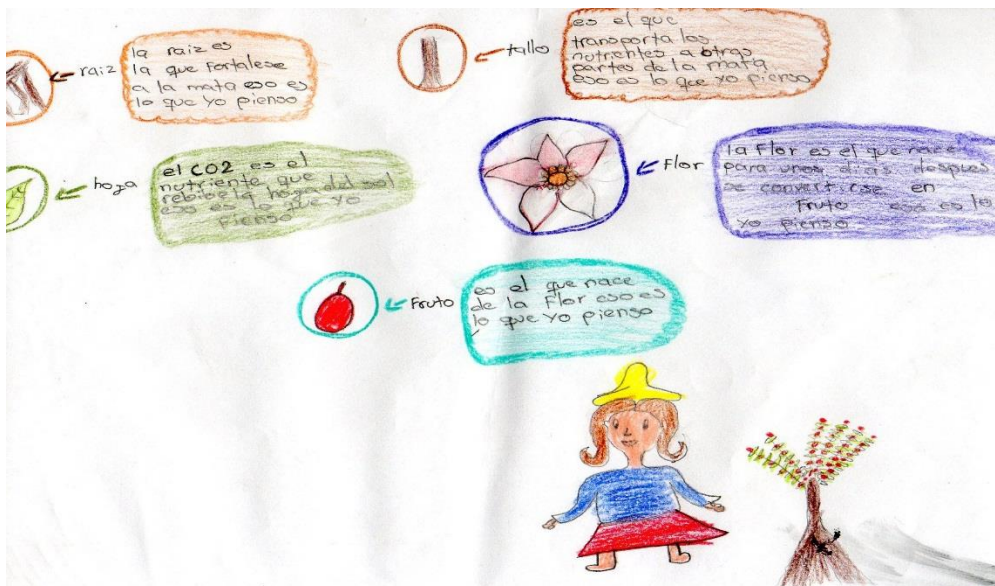 raiz
la raiz es
la que Fortalese
a la mata eso es
lo que yo pienso
tallo
es el que
transporta los
nutrientes a otras
partes de la mata
eso es lo que yo pienso
hoja
el CO2 es el
nutriente que
rebibe la hoja del sol
eso es lo que yo
pienso
Flor
la Flor es el que nace
para unos dias despues
se convertirse en
Fruto eso es lo
yo pienso
Fruto
es el que nace
de la Flor eso es
lo que yo pienso